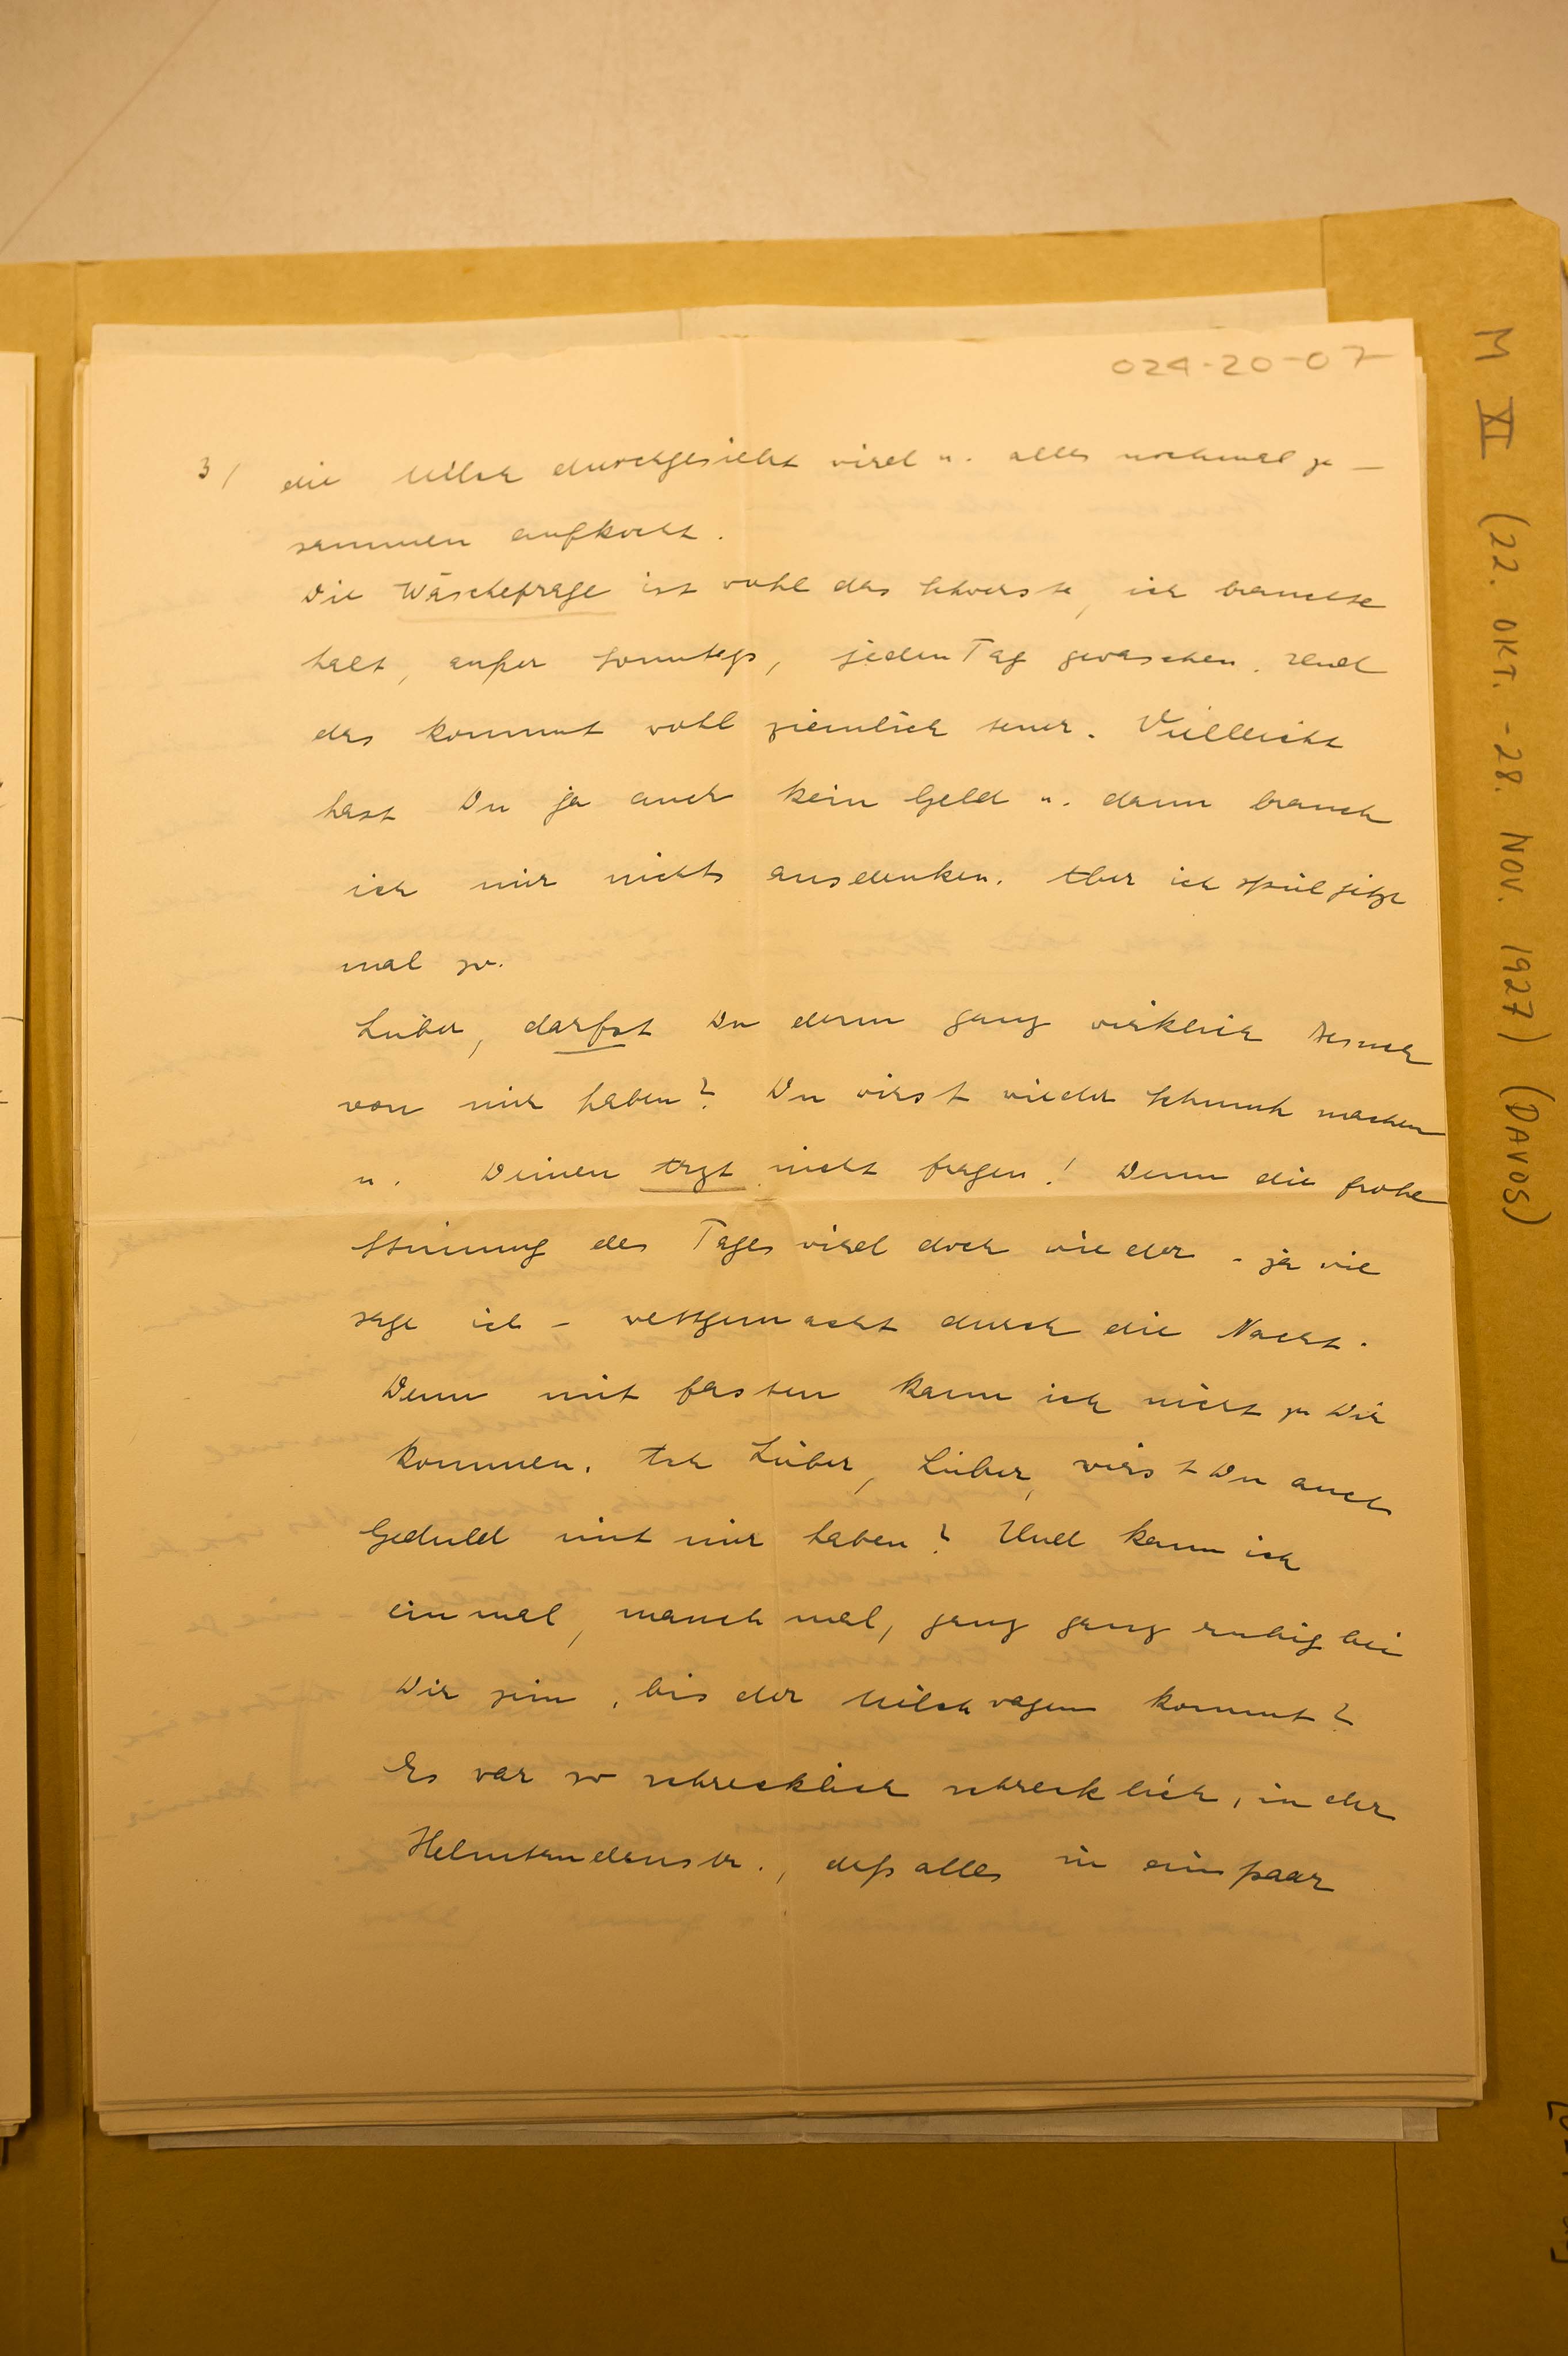 024-20-07
3/ die Milch durchgesiebt wird u. alles nochmal zu-
sammen aufkocht.
Die Wäschefrage ist wohl das Schwerste, ich brauchte
halt, außer Sonntags, jeden Tag gewaschen. Und
das kommt wohl ziemlich teuer. Vielleicht
hast Du ja auch kein Geld u. dann brauch
ich mir nichts ausdenken. Aber ich spiel jetzt
mal so.
Lieber, darfst Du denn ganz wirklich Besuch
von mir haben? Du wirst wieder machen
u. Deinen Arzt nicht fragen! Denn die frohe
Stimmung des Tages wird doch wieder - ja wie
sage ich - wettgemacht durch die Nacht.
Denn mit fasten kann ich nicht zu Dir
kommen. Ach Lieber, Lieber, wirst Du auch
Geduld mit mir haben? Und kann ich
einmal, manchmal, ganz ganz ruhig bei
Dir sein, bis der Milchwagen kommt?
Es war so schrecklich schrecklich, in der
Helmtrudenstr., daß alles in ein paar
M XI (22. OKT. - 28. NOV. 1927) (DAVOS)